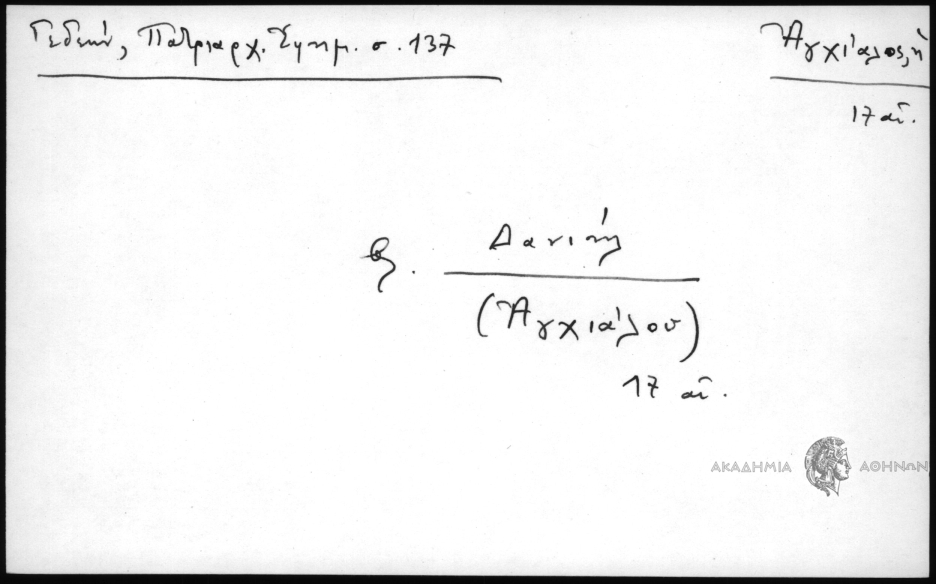 Γεδεών, Πατριαρχ. Σημ. σ. 137
Ἀγχίαλος, ἡ
17 αἰ.
β. Δανιήλ
(Ἀγχιάλου)
17 αἰ.
ΑΚΑΔΗΜΙΑ ΑΘΗΝΩΝ